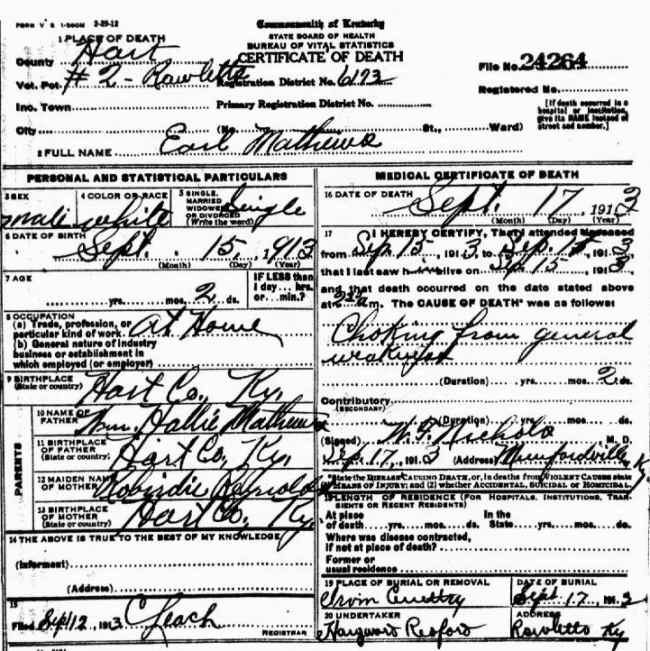 FORM V S 1-500M 2-29-12
Commonwealth of Kentucky
STATE BOARD OF HEALTH
BUREAU OF VITAL STATISTICS
CERTIFICATE OF DEATH
1 PLACE OF DEATH
County Hart
Vot. Pct. #2 - Rowletts Registration District No. 6173
Inc. Town Primary Registration District No.
City (No. St., Ward)
File No. 24264
Registered No.
[If death occurred in a hospital or institution, give its NAME instead of street and number.]
2 FULL NAME Earl Mathews
PERSONAL AND STATISTICAL PARTICULARS
3 SEX male
4 COLOR OR RACE white
5 SINGLE, MARRIED WIDOWED OR DIVORCED (Write the word) Single
6 DATE OF BIRTH Sept. 15, 1913
(Month) (Day) (Year)
7 AGE yrs. mos. 2 ds.
IF LESS than 1 day... hrs. or... min.?
8 OCCUPATION
(a) Trade, profession, or particular kind of work At Home
(b) General nature of industry business or establishment in which employed (or employer)
9 BIRTHPLACE (State or country) Hart Co., Ky.
PARENTS
10 NAME OF FATHER Wm. Hallie Mathews
11 BIRTHPLACE OF FATHER (State or country) Hart Co., Ky.
12 MAIDEN NAME OF MOTHER Reynolds
13 BIRTHPLACE OF MOTHER (State or country) Hart Co., Ky
14 THE ABOVE IS TRUE TO THE BEST OF MY KNOWLEDGE
(Informant)
(Address)
15
Filed Sept 12, 1913 C Leach
REGISTRAR
MEDICAL CERTIFICATE OF DEATH
16 DATE OF DEATH Sept. 17, 1913
(Month) (Day) (Year)
17 I HEREBY CERTIFY, That I attended deceased
from Sep. 15, 1913, to Sep. 15, 1913,
that I last saw him alive on Sep 15, 1913,
and that death occurred on the date stated above
at m. The CAUSE OF DEATH* was as follows:
Choking from general
weakness
(Duration) yrs. mos. 2 ds.
Contributory
(SECONDARY)
(Duration) yrs. mos. ds.
(Signed) Nichols M. D.
Sep 17, 1913 (Address) Munfordville, Ky
*State the DISEASE CAUSING DEATH, or, in deaths from VIOLENT CAUSES state
MEANS OF INJURY; and (2) whether ACCIDENTAL, SUICIDAL OR HOMICIDAL.
18 LENGTH OF RESIDENCE (FOR HOSPITALS, INSTITUTIONS, TRANSIENTS OR RECENT RESIDENTS)
At place of death yrs. mos. ds. In the State yrs. mos. ds.
Where was disease contracted,
if not at place of death?
Former or
usual residence
19 PLACE OF BURIAL OR REMOVAL
Irvin Cemetry
DATE OF BURIAL
Sept 17, 1913
20 UNDERTAKER
ADDRESS
Rowletts Ky